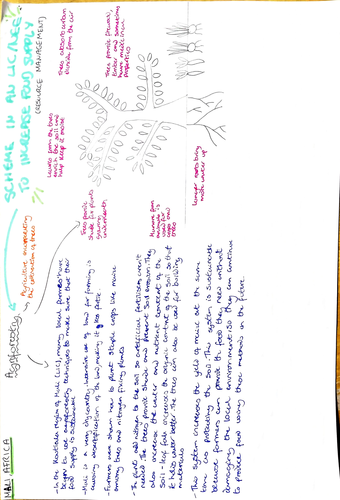 MALI AFRICA
SCHEME IN AN LIC/NEE
TO INCREASE FOOD SUPPLY
(RESOURCE MANAGEMENT)
Agroforestry
Agriculture incorporating
the cultivation of trees
Leaves from the trees
enrich the soil and
help keep it moist
Trees absorb carbon
dioxide from the air
Trees provide firewood,
timber and sometimes
have medicinal
properties
Trees provide
shade for plants
growing
underneath
Manure from
animals is
used for
crops and
trees
Longer roots bring
more water up
- In the Koulikoro region of Mali (LIC), many local farmers have
begun to use agroforestry techniques to make sure that their
food supply is sustainable
- Mali is very dry country; intensive use of land for farming is
causing desertification of the land, making it less fertile.
- Farmers were shown how to plant staple crops like maize
among trees and nitrogen fixing plants
- The plants add nitrogen to the soil so artificial fertilisers aren't
needed. The trees provide shade and prevent soil erosion. They
also increase the water and nutrient content of the
soil - leaf fall increases the organic content of the soil so that
it holds water better. The trees can also be used for building
materials
- This system increases the yield of maize at the same
time as protecting the soil. This system is sustainable
because farmers can provide the food they need without
damaging the local environment so they can continue
to produce food using these methods in the future.